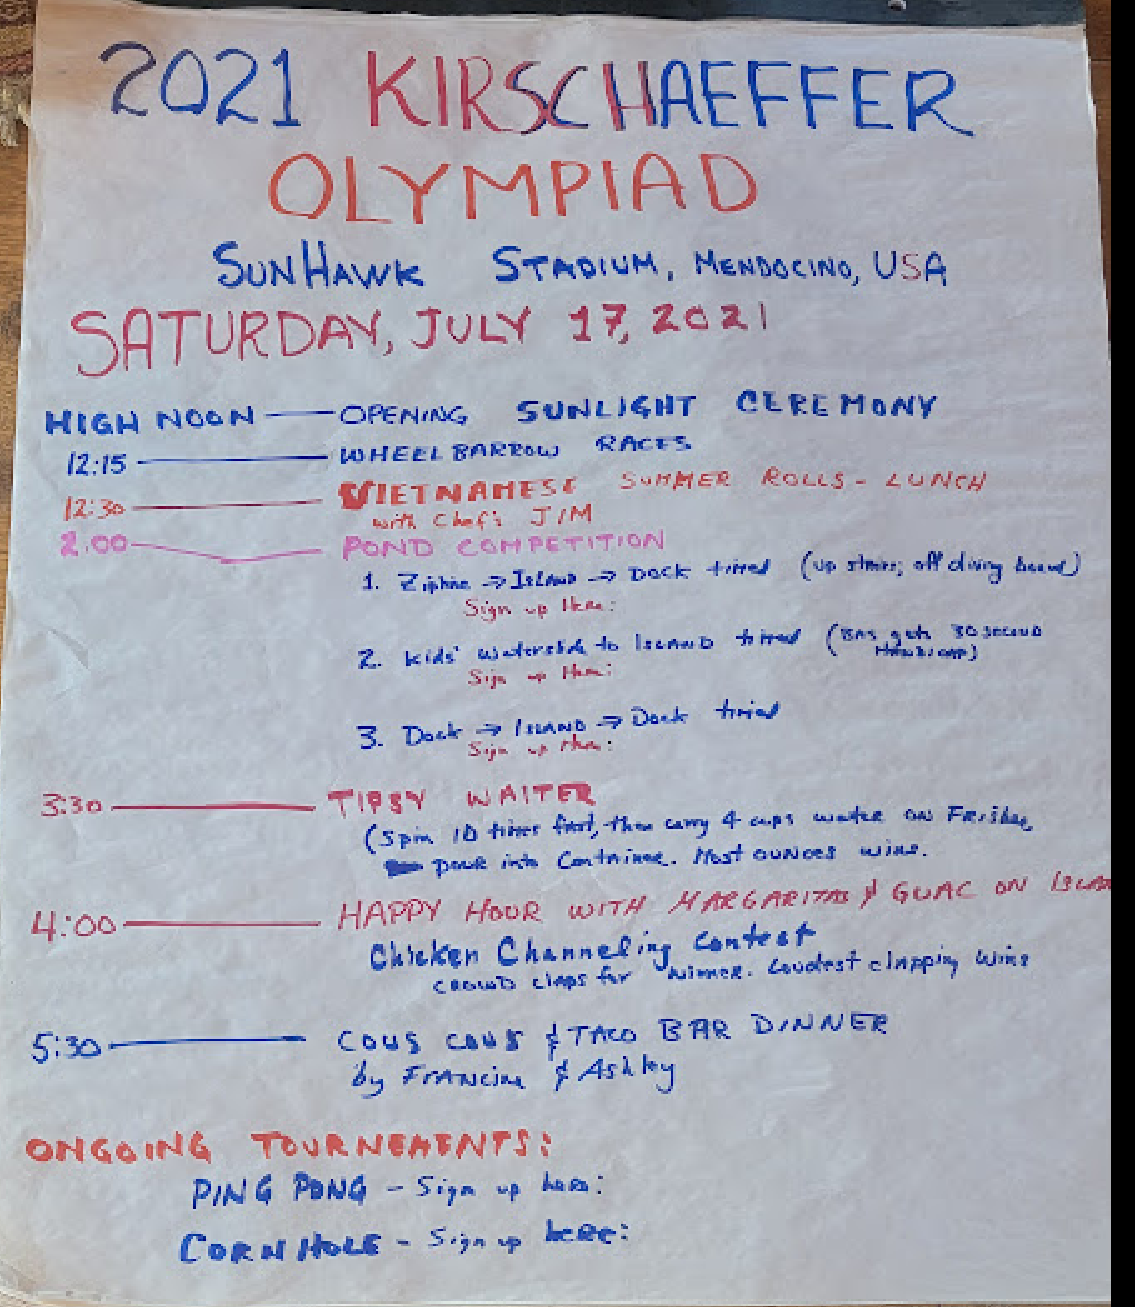 2021 KIRSCHAEFFER
OLYMPIAD
SUNHAWK STADIUM, MENDOCINO, USA
SATURDAY, JULY 17, 2021
HIGH NOON — OPENING SUNLIGHT CEREMONY
12:15 — WHEELBARROW RACES
12:30 — VIETNAMESE SUMMER ROLLS - LUNCH
with Chef: JIM
2:00 — POND COMPETITION
1. Zipline → ISLAND → Dock timed (up stairs; off diving board)
Sign up Here:
2. Kids' waterslide to ISLAND timed (BAS gets 30 SECOND
HANDICAP)
Sign up Here:
3. Dock → ISLAND → Dock timed
Sign up Here:
3:30 — TIPSY WAITER
(Spin 10 times first, then carry 4 cups water on Frisbee,
pour into Container. Most OUNCES wins.
4:00 — HAPPY HOUR WITH MARGARITAS & GUAC ON
Chicken Channeling contest
CROWD claps for winner. Loudest clapping wins
5:30 — COUS COUS & TACO BAR DINNER
by FRANCINE & Ashley
ONGOING TOURNEMENTS:
PING PONG - Sign up here:
CORNHOLE - Sign up here: